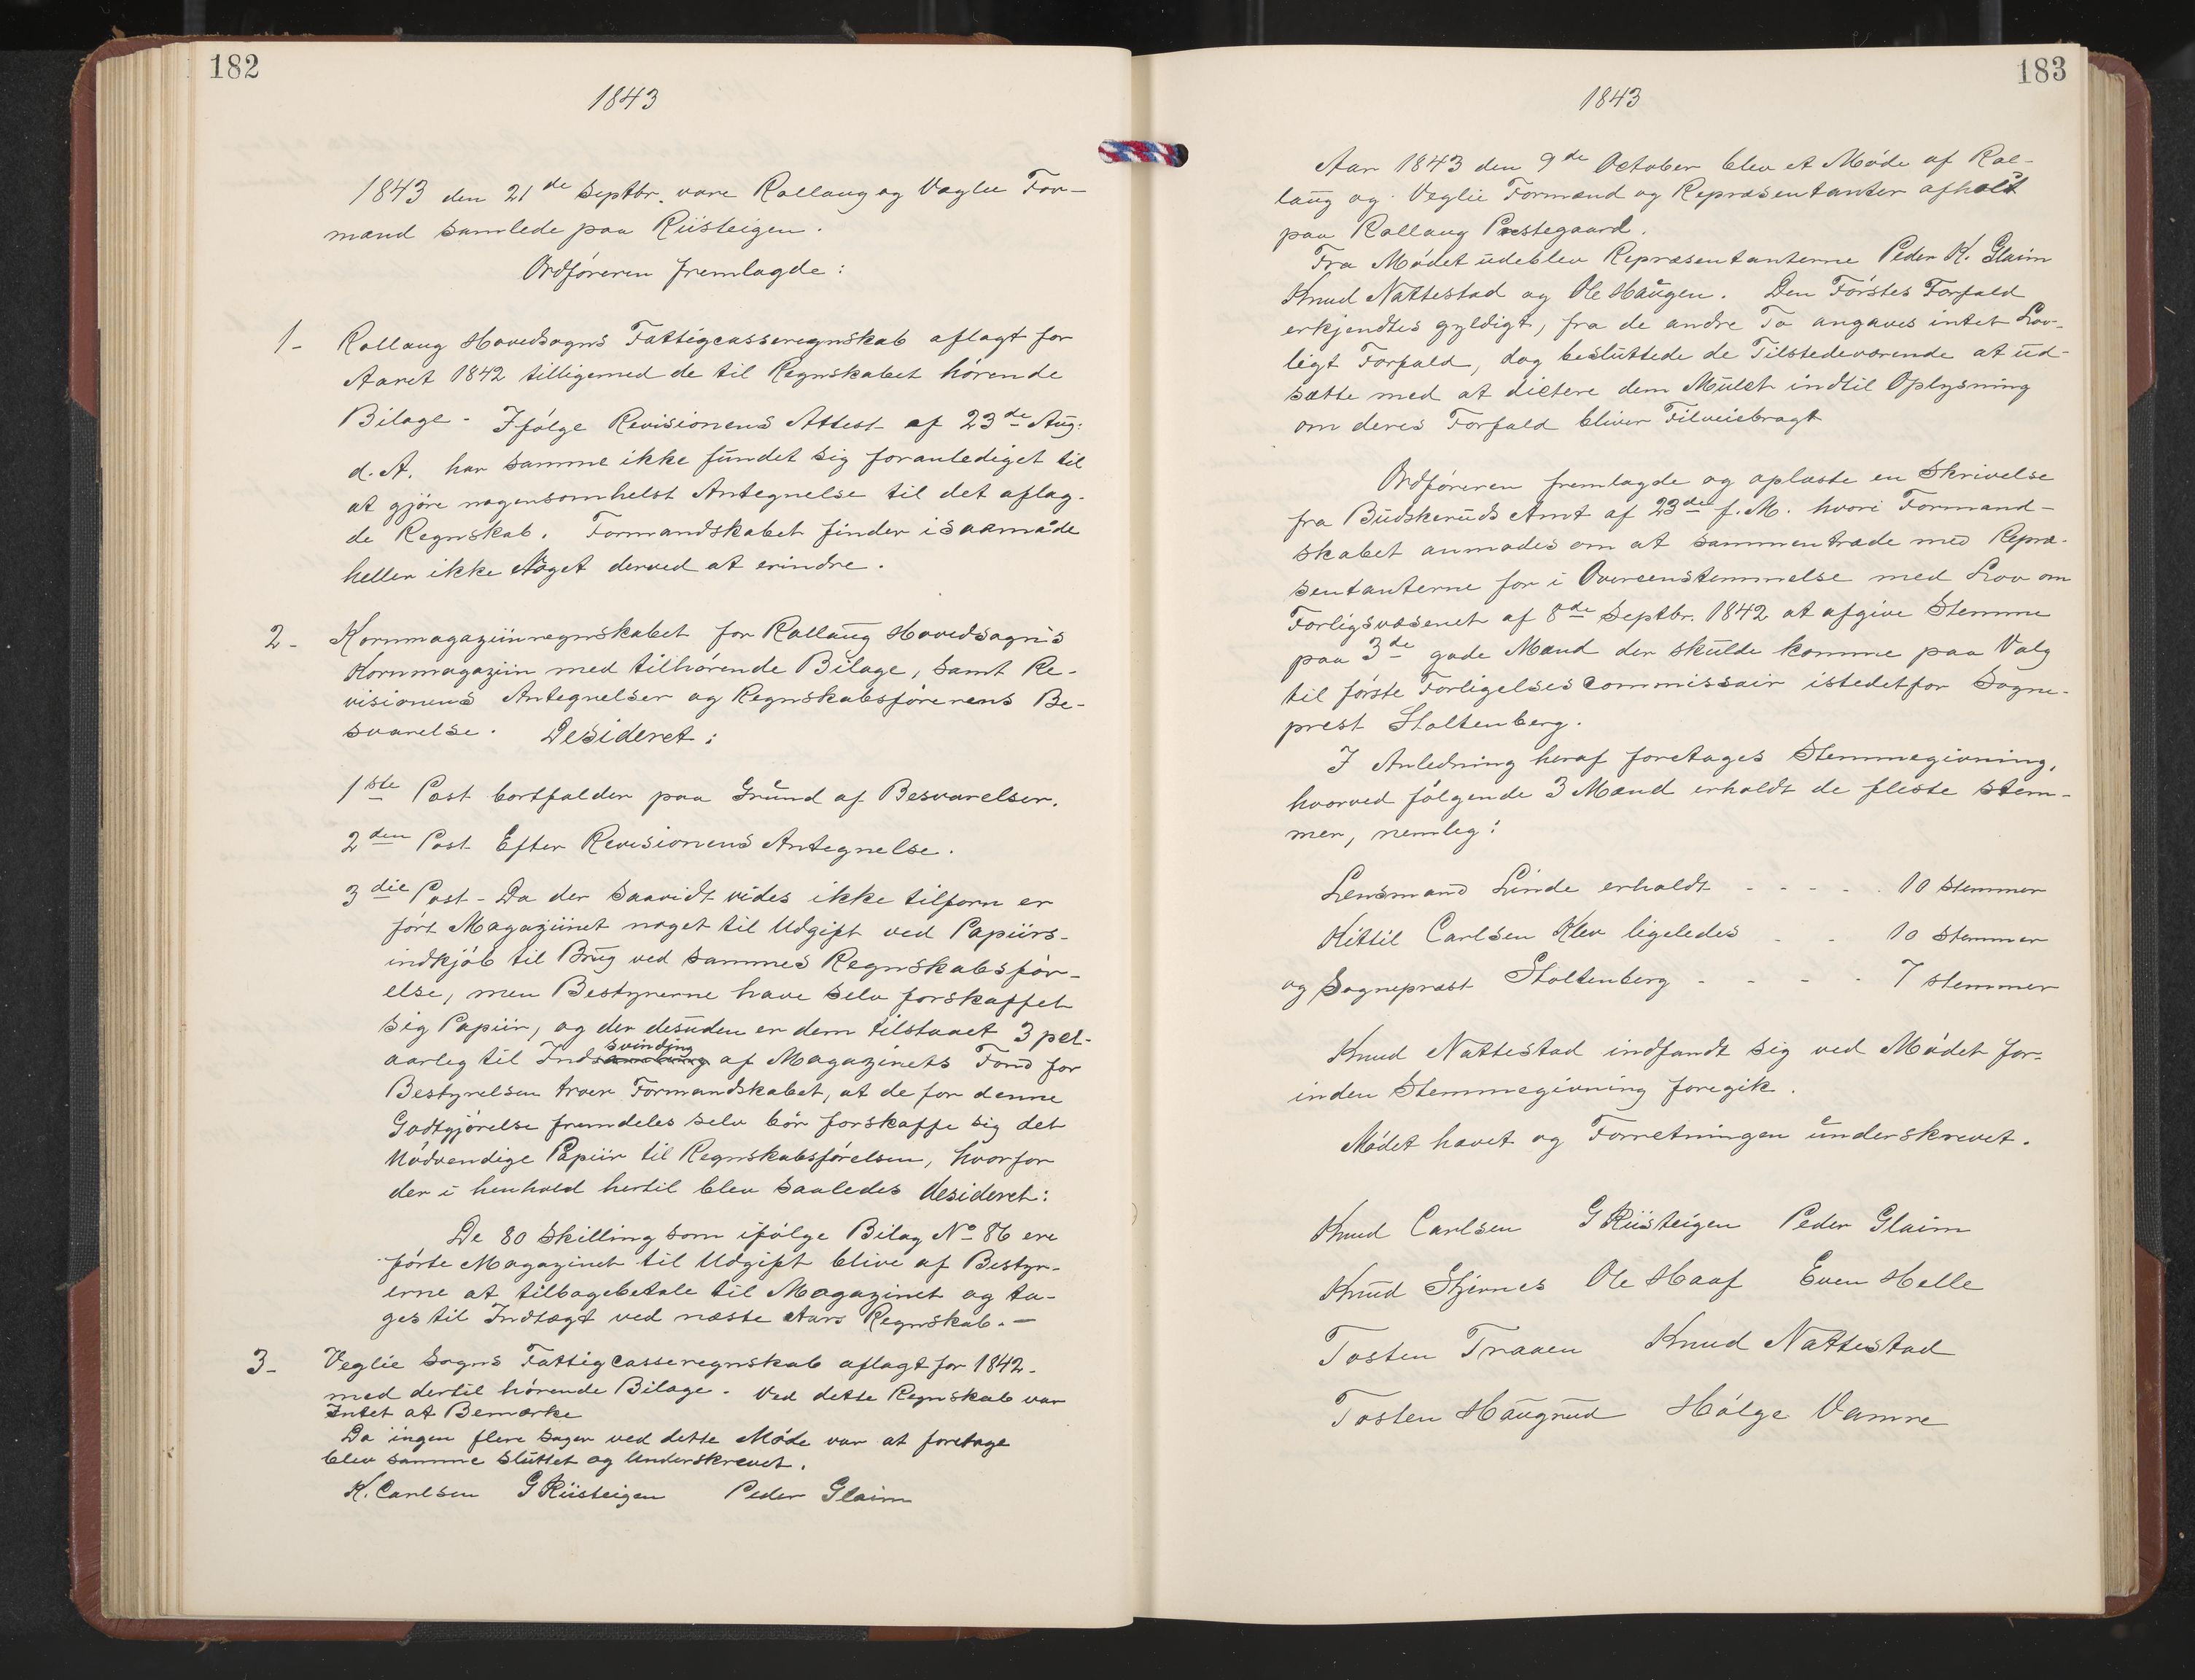 182
1843
1843 den 21de Septbr. vare Rollaug og Væglie For-
mænd samlede paa Riisteigen.
Ordføreren fremlagde:
1- Rollaug Hovedsogns Fattigcasseregnskab aflagt for
Aaret 1842 tilligemed de til Regnskabet hørende
Bilage - Ifølge Revisionens Attest af 23de Aug.
d. A. har samme ikke fundet sig foranlediget til
at gjøre nogensomhelst Antegnelse til det aflag-
de Regnskab. Formandskabet finder isaamaade
heller ikke Noget derved at erindre.
2- Kornmagaziinregnskabet for Rollaug Hovedsogns
Kornmagaziin med tilhørende Bilage, samt Re-
visionens Antegnelser og Regnskabsførerens Be-
svarelse. Desideret:
1ste Post bortfalder paa Grund af Besvarelser.
2den Post Efter Revisionens Antegnelse.
3die Post - Da der saavidt vides ikke tilforn er
ført Magaziinet noget til Udgift ved Papiirs-
indkjøb til Brug ved sammes Regnskabsfør-
else, men Bestyrerne have selv forskaffet
sig Papiir, og der desuden er dem tilstaaet 3 pct.
aarleg til Indsvinding af Magazinets Fond for
Bestyrelsen troer Formandskabet, at de for denne
Godtgjørelse fremdeles selv bør forskaffe sig det
Nødvendige Papiir til Regnskabsførelsen, hvorfor
der i henhold hertil blev saaledes desideret:
De 80 Skilling som ifølge Bilag No 86 ere
førte Magazinet til Udgift blive af Bestyr-
erne at tilbagebetale til Magazinet og ta-
ges til Indtægt ved næste Aars Regnskab. -
3- Veglie Sogns Fattigcasseregnskab aflagt for 1842.
med dertil hørende Bilage. Ved dette Regnskab var
Intet at Bemærke
Da ingen flere Sager ved dette Møde var at foretage
blev samme sluttet og Underskrevet.
K. Carlsen G Riisteigen Peder Glaim
183
1843
Aar 1843 den 9de October blev et Møde af Rol-
laug og Veglie Formænd og Repræsentanter afholt
paa Rollaug Prestegaard.
Fra Mødet udeblev Repræsentanterne Peder K. Glaim
Knud Nattestad og Ole Haugen. Den Førstes Forfald
erkjendtes gyldigt, fra de andre To angaves intet Lov-
ligt Forfald, dog besluttede de Tilstedeværende at ud-
sætte med at dictere dem Mulct indtil Oplysning
om deres Forfald bliver Tilveiebragt
Ordføreren fremlagde og oplæste en Skrivelse
fra Budskeruds Amt af 23de f. M. hvori Formand-
skabet anmodes om at sammentræde med Repræ-
sentanterne for i Overeenstemmelse med Lov om
Forligsvæsenet af 8de Septbr. 1842 at afgive Stemme
paa 3de gode Mænd der skulde komme paa Valg
til første Forligelsescommissair istedetfor Sogne-
prest Stoltenberg.
I Anledning heraf foretages Stemmegivning,
hvorved følgende 3 Mænd erholdt de fleste Stem-
mer, nemleg:
Lensmand Lunde erholdt - - - - . 10 stemmer
Kittil Carlsen Klev ligeledes - - 10 stemmer
og Sogneprest Stoltenberg - - - - 7 stemmer
Knud Nattestad indfandt sig ved Mødet for-
inden Stemmegivning foregik.
Mødet hævet og Forretningen underskrevet.
Knud Carlsen G Riisteigen Peder Glaim
Knud Stjernes Ole Haaf Even Helle
Tosten Traaen Knud Nattestad
Tosten Haugrud Hølge Vamre